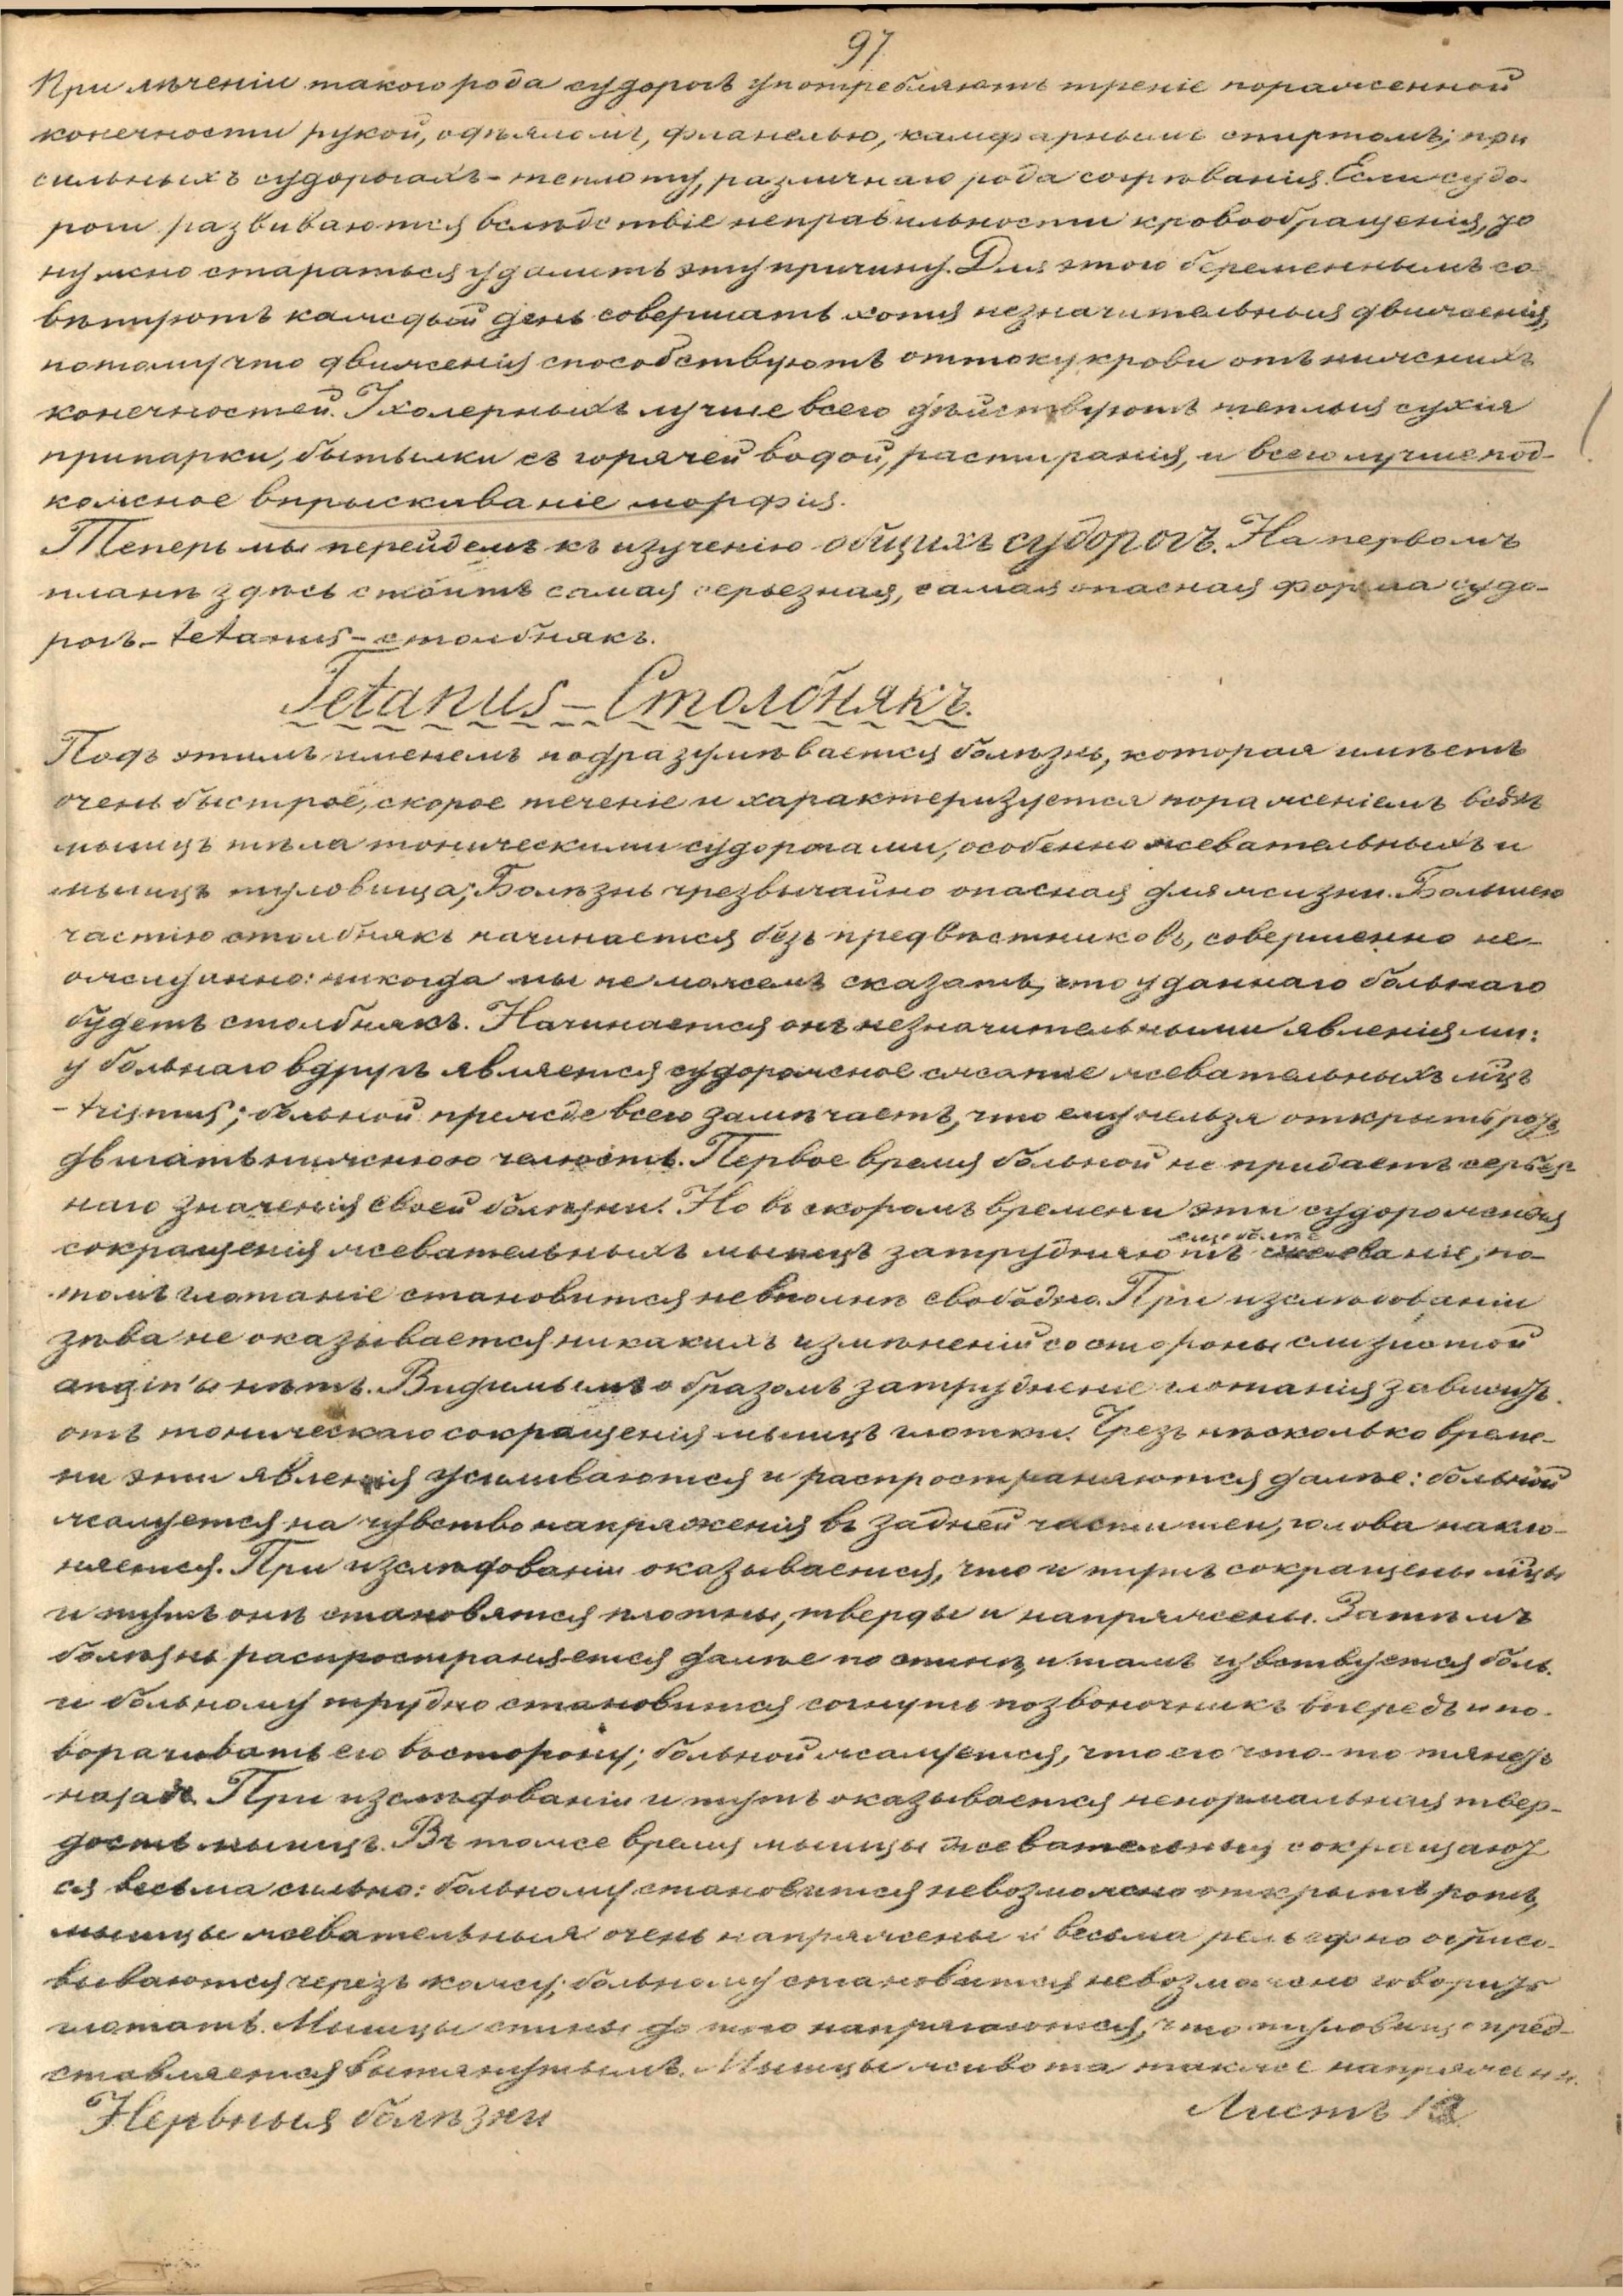 97
При лѣченіи такого рода судорогъ употребляютъ треніе пораженной
конечности рукой, одѣяломъ, фланелью, камфарнымъ спиртомъ; при
сильныхъ судорогахъ – теплоту, различнаго рода согрѣванія. Если судо-
роги развиваются вслѣдствіе неправильности кровообращенія, то
нужно стараться удалить эту причину. Для этого беременнымъ со-
вѣтуютъ каждый день совершать хотя незначительныя движенія,
потому что движенія способствуютъ оттоку крови отъ нижнихъ
конечностей. У холерныхъ лучше всего дѣйствуютъ теплыя сухія
припарки, бутылки съ горячей водой, растиранія, и всего лучше под-
кожное впрыскиваніе морфія.
Теперь мы перейдемъ къ изученію общихъ судорогъ. На первомъ
планѣ здѣсь стоитъ самая серьезная, самая опасная форма судо-
рогъ – tetanus – столбнякъ.
Tetanus – Столбнякъ.
Подъ этимъ именемъ подразумѣвается болѣзнь, которая имѣетъ
очень быстрое, скорое теченіе и характеризуется пораженіемъ всѣхъ
мышцъ тѣла тоническими судорогами, особенно жевательныхъ и
мышцъ туловища; Болѣзнь чрезвычайно опасная для жизни. Большею
частію столбнякъ начинается безъ предвѣстниковъ, совершенно не-
ожиданно: никогда мы не можемъ сказать, что у даннаго больнаго
будетъ столбнякъ. Начинается онъ незначительными явленіями:
у больнаго вдругъ является судорожное сжатіе жевательныхъ мцъ
– trismus; больной прежде всего замѣчаетъ, что ему нельзя открыть ротъ,
двигать нижнюю челюсть. Первое время больной не придаетъ серьез-
наго значенія своей болѣзни. Но въ скоромъ времени эти судорожныя
сокращенія жевательныхъ мышцъ затрудняютъ жеваніе, по-
томъ глотаніе становится не вполнѣ свободно. При изслѣдованіи
зѣва не оказывается никакихъ измѣненій со стороны слизистой
angin'ы нѣтъ. Видимымъ образомъ затрудненіе глотанія зависитъ
отъ тоническаго сокращенія мышцъ глотки. Чрезъ нѣсколько време-
ни эти явленія усиливаются и распространяются далѣе: больной
жалуется на чувство напряженія въ задней части шеи, голова накло-
няется. При изслѣдованіи оказывается, что и тутъ сокращены мцы
и тутъ онѣ становятся плотны, тверды и напряжены. Затѣмъ
болѣзнь распространяется далѣе по спинѣ, и тамъ чувствуется боль
и больному трудно становится согнуть позвоночникъ впередъ и по-
ворачивать его въ сторону; больной жалуется, что его что-то тянетъ
назадъ. При изслѣдованіи и тутъ оказывается ненормальная твер-
дость мышцъ. Въ тоже время мышцы жевательныя сокращают-
ся весьма сильно: больному становится невозможно открыть ротъ,
мышцы жевательныя очень напряжены и весьма рельефно обрисо-
вываются черезъ кожу; больному становится невозможно говорить
глотать. Мышцы спины до того напрягаются, что туловище пред-
ставляется вытянутымъ. Мышцы живота также напряжены.
Нервныя болѣзни
Листъ